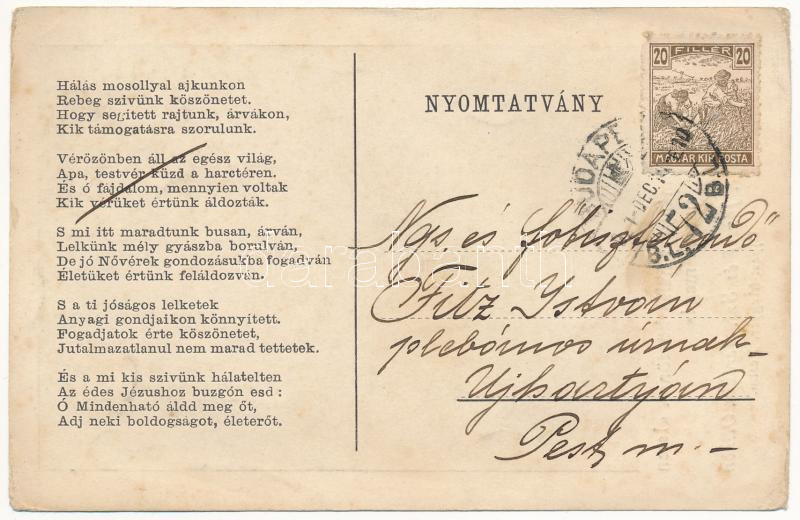 Hálás mosollyal ajkunkon
Rebeg szivünk köszönetet.
Hogy segitett rajtunk, árvákon,
Kik támogatásra szorulunk.
Vérözönben áll az egész világ,
Apa, testvér küzd a harctéren.
És ó fájdalom, mennyien voltak
Kik vérüket értünk áldozták.
S mi itt maradtunk busan, árván,
Lelkünk mély gyászba borulván,
De jó Nővérek gondozásukba fogadván
Életüket értünk feláldozván.
S a ti jóságos lelketek
Anyagi gondjaikon könnyített.
Fogadjatok érte köszönetet,
Jutalmazatlanul nem marad tettetek.
És a mi kis szivünk hálatelten
Az édes Jézushoz buzgón esd :
Ó Mindenható áldd meg őt,
Adj neki boldogságot, életerőt.
NYOMTATVÁNY
20 FILLÉR 20
MAGYAR KIR. POSTA
BUDAPE
DEC.
72
B.L.
Ngs és főtisztelendő
Fitz Istvan
plebános úrnak
Ujhartyán
Pest m.-
darabanth